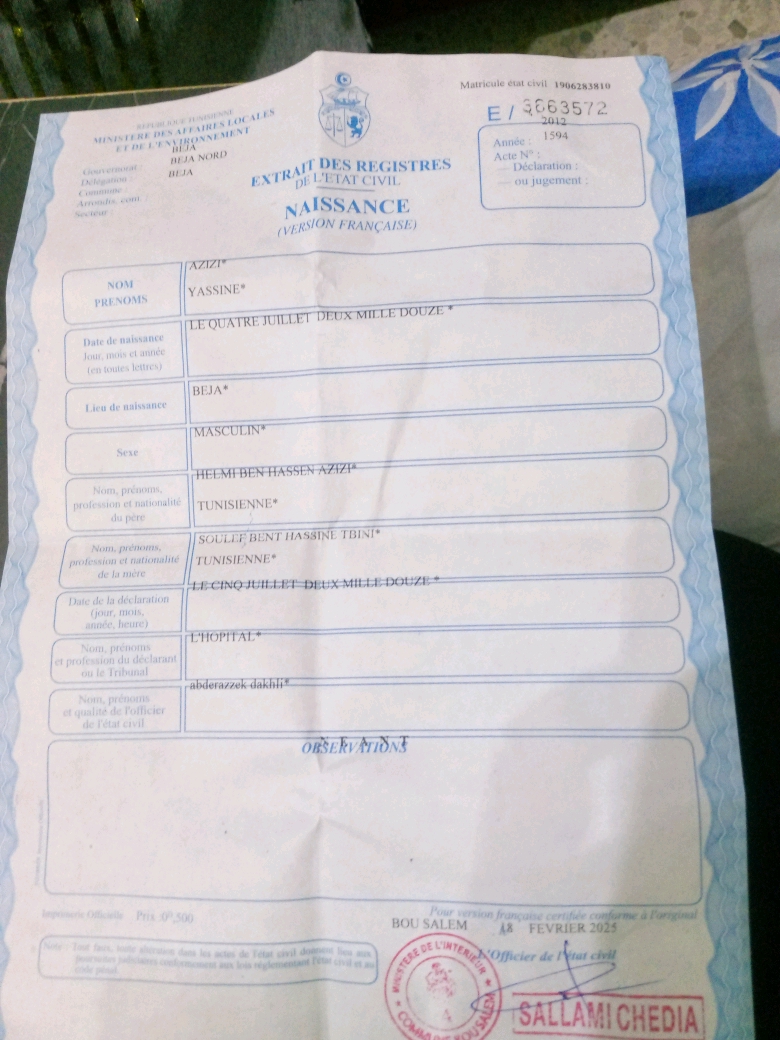 Matricule état civil 1906283810
REPUBLIQUE TUNISIENNE
MINISTERE DES AFFAIRES LOCALES
ET DE L'ENVIRONNEMENT
E / 3663572
2012
Année : 1594
Acte N° :
Déclaration :
ou jugement :
BEJA
Gouvernorat :
BEJA NORD
Délégation :
BEJA
Commune :
Arrondis. com. :
Secteur :
EXTRAIT DES REGISTRES
DE L'ETAT CIVIL
NAISSANCE
(VERSION FRANÇAISE)
AZIZI*
NOM
PRENOMS
YASSINE*
LE QUATRE JUILLET DEUX MILLE DOUZE *
Date de naissance
Jour, mois et année
(en toutes lettres)
BEJA*
Lieu de naissance
MASCULIN*
Sexe
HELMI BEN HASSEN AZIZI*
Nom, prénoms,
profession et nationalité
du père
TUNISIENNE*
SOULEF BENT HASSINE TBINI*
Nom, prénoms,
profession et nationalité
de la mère
TUNISIENNE*
LE CINQ JUILLET DEUX MILLE DOUZE *
Date de la déclaration
(jour, mois,
année, heure)
L'HOPITAL*
Nom, prénoms
et profession du déclarant
ou le Tribunal
abderazzek dakhli*
Nom, prénoms
et qualité de l'officier
de l'état civil
N E A N T
OBSERVATIONS
Imprimerie Officielle Prix :0ᴰ,500
Pour version française certifiée conforme à l'original
BOU SALEM 18 FEVRIER 2025
L'Officier de l'état civil
Note : Tout faux, toute altération dans les actes de l'état civil donnent lieu aux
poursuites judiciaires conformément aux lois réglementant l'état civil et au
code pénal.
MINISTERE DE L'INTERIEUR
COMMUNE BOU SALEM
SALLAMI CHEDIA